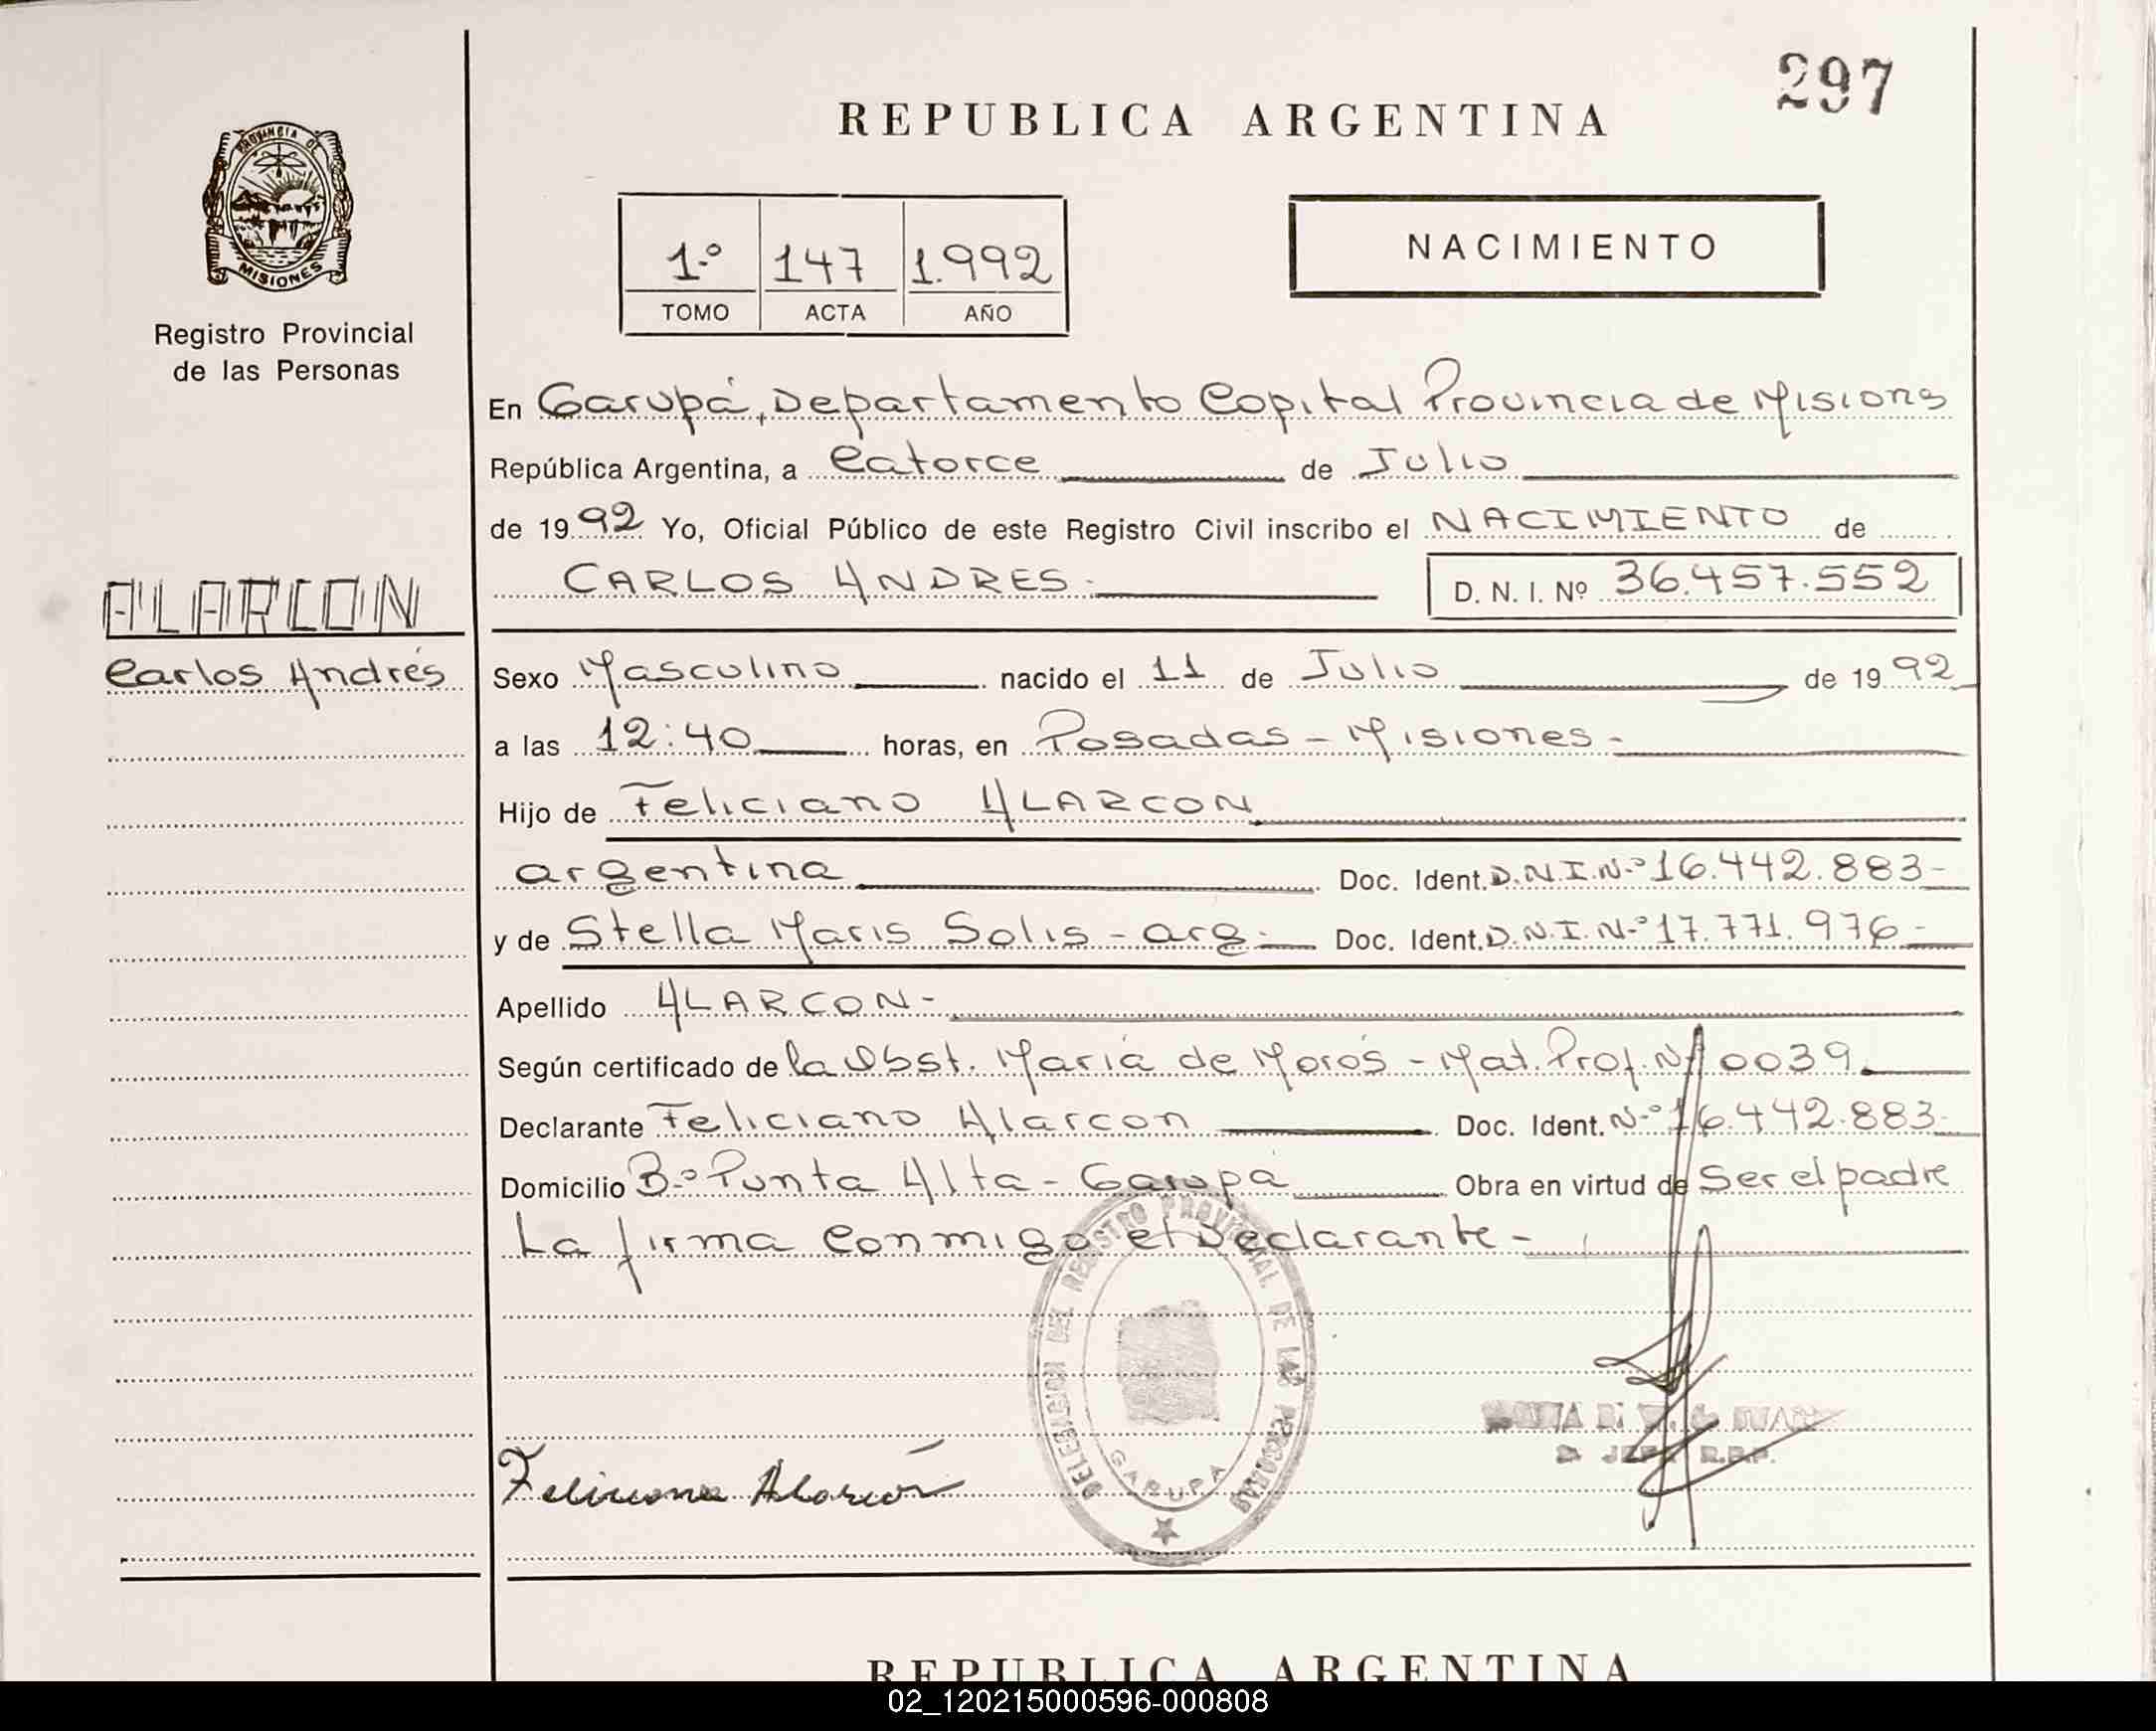 297
REPUBLICA ARGENTINA
PROVINCIA DE
MISIONES
Registro Provincial
de las Personas
1.º 147 1.992
TOMO ACTA AÑO
NACIMIENTO
En Garupá, Departamento Capital Provincia de Misions
República Argentina, a Catorce de Julio
de 1992 Yo, Oficial Público de este Registro Civil inscribo el NACIMIENTO de
CARLOS ANDRES.
D. N. I. Nº 36.457.552
ALARCON
Carlos Andrés
Sexo Masculino nacido el 11 de Julio de 1992
a las 12:40 horas, en Posadas - Misiones -
Hijo de Feliciano ALARCON
argentina Doc. Ident. D.N.I.N.º 16.442.883-
y de Stella Maris Solis - arg. Doc. Ident. D.N.I.N.º 17.771.976-
Apellido ALARCON-
Según certificado de la Obst. María de Morós - Mat. Prof. Nº 0039.
Declarante Feliciano Alarcon Doc. Ident. N.º 16.442.883-
Domicilio B.º Punta Alta - Garupá Obra en virtud de Ser el padre
La firma conmigo el Declarante -
DELEGACION DEL REGISTRO PROVINCIAL DE LAS PERSONAS
GARUPA
JEFA R.P.P.
Feliciano Alarcón
REPUBLICA ARGENTINA
02_120215000596-000808